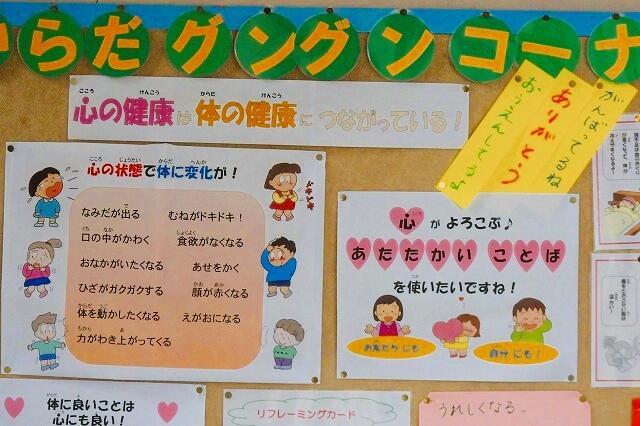 からだグングンコーナ
心の健康は体の健康につながっている！
こころ けんこう からだ けんこう
がんばってるね
ありがとう
おうえんしてるよ
こころ じょうたい からだ へんか
心の状態で体に変化が！
ドキドキ
なみだが出る
むねがドキドキ！
口の中がかわく
食欲がなくなる
おなかがいたくなる
あせをかく
ひざがガクガクする
顔が赤くなる
体を動かしたくなる
えがおになる
力がわき上がってくる
こころ
心がよろこぶ♪
あたたかいことば
を使いたいですね！
お友だちにも
自分にも！
体に良いことは
心にも良い！
リフレーミングカード
うれしくなる。